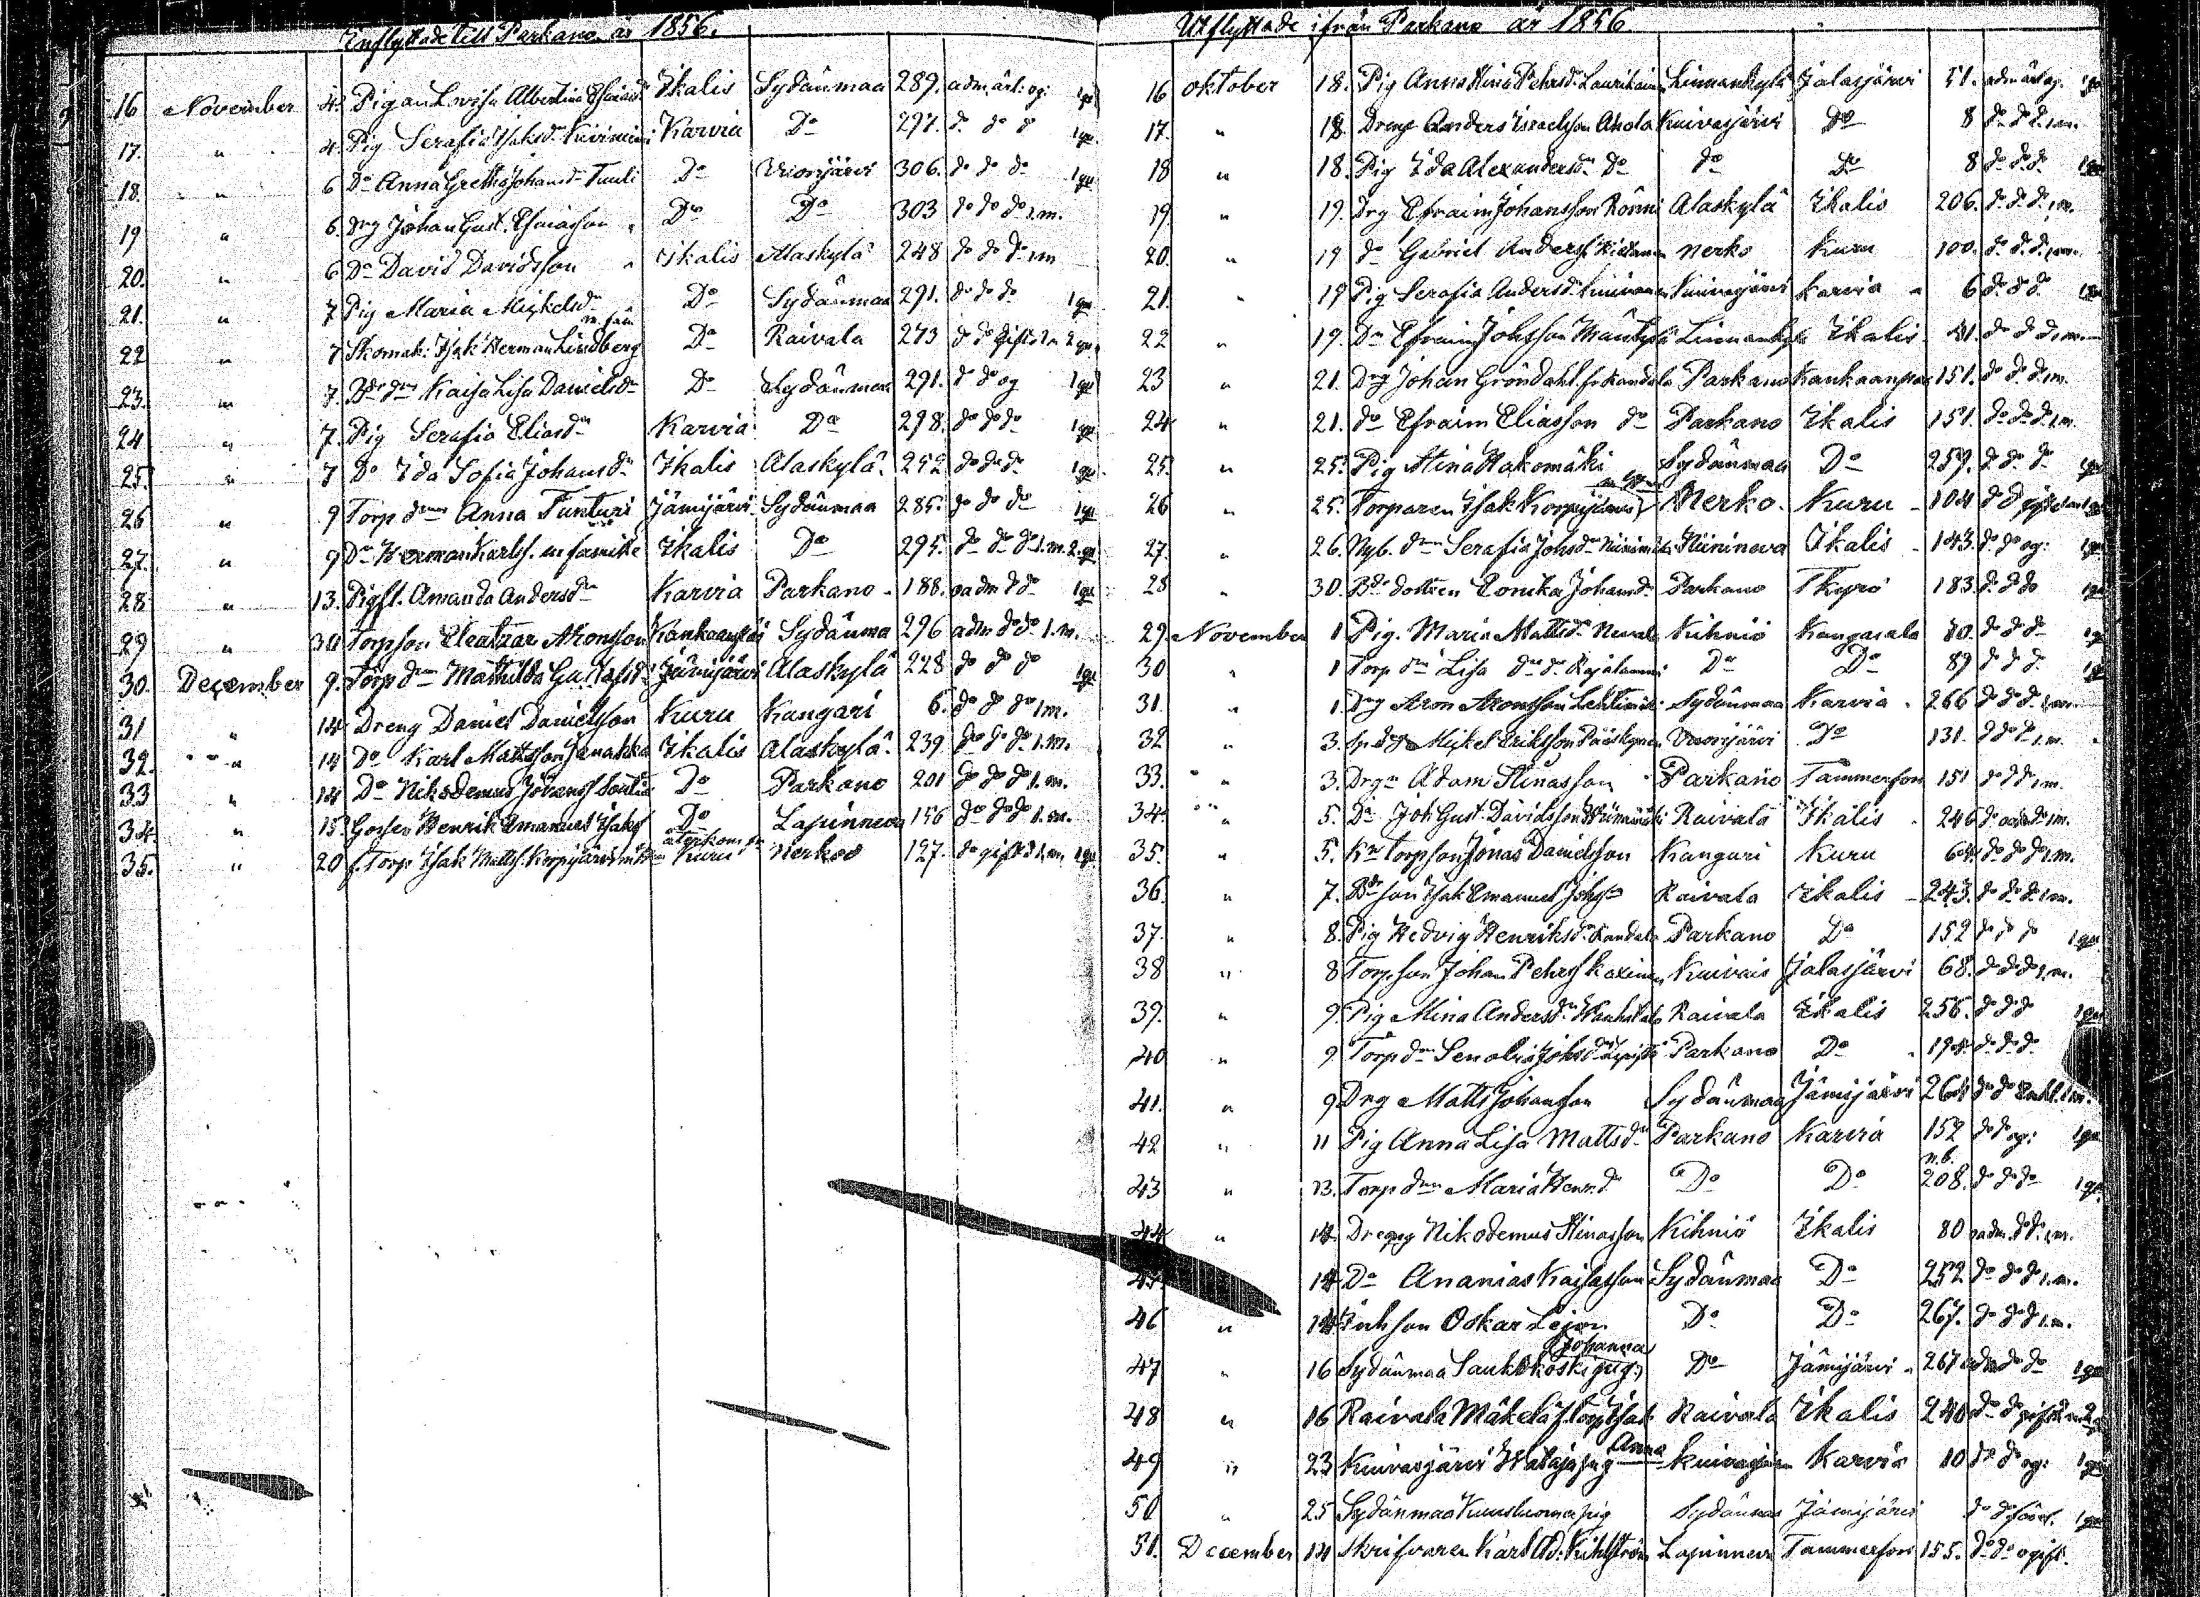 Inflyttade till Parkano år 1856.
16 November 4. Pigan Lovisa Albertina Esaiasdr Ikalis Sydänmaa 289. adm. ärl. og. 1 qu
17. " 4. Pig Serafia Isaksdr Karvia Do 297. do do do 1 qu
18. " 6 Do Anna Gretha Johansdr Tuuli Do Vuorijärvi 306. do do do 1 qu
19 " 6. Drg Johan Gust. Esaiasson Do Do 303 do do do 1 m.
20. " 6 Do David Davidsson Ikalis Alaskylä 248 do do do 1 m
21. " 7 Pig Maria Mickelsdr Do Sydänmaa 291. do do do 1 qu
22 " 7 Skomak: Isak Herman Lindberg Do Raivala 273 do do gift 1 m 2 qu
23. " 7. Kaisa Lisa Danielsdr Do Sydänmaa 291. do do og 1 qu
24 " 7. Pig Serafia Eliasdr Karvia Do 298. do do do 1 qu
25. " 7 Do Ida Sofia Johansdr Ikalis Alaskylä 252 do do do 1 qu
26 " 9 Torp drn Anna Tunturi Jämijärvi Sydänmaa 285. do do do 1 qu
27. " 9 Do Herman Karlss. m familie Ikalis Do 295. do do do 1 m. 2 qu
28 " 13. Pigfl. Amanda Andersdr Karvia Parkano 188. oadm do do 1 qu
29 " 30 Torpson Eleatzar Aronsson Kankaanpää Sydänmaa 296 adm do do 1. m.
30. December 9. Torp drn Mathilda Gustafsdr Jämijärvi Alaskylä 228 do do do 1 qu
31 " 14 Dreng Daniel Danielsson Kuru Kangari 6. do do do 1 m.
32. " 14 Do Karl Mattsson Ikalis Alaskylä 239 do do do 1. m.
33 " 14 Do Nikodemus Johanss Do Parkano 201 do do do 1. m.
34. " 15 Gossen Henrik Emanuel Isaks Do Lapinneva 156 do do do 1. m.
återkom fr
35. " 20 f. Torp Isak Matts. Korpijärvi Kuru Nerkoo 127. do gift do 1 m 1 qu
Utflyttade ifrån Parkano år 1856.
16 oktober 18. Pig Anna Stina Pehrsdr Linnankylä Jalasjärvi 51. adm ärl og. 1 qu
17. " 18. Dreng Anders Israelsson Ahola Kuivasjärvi Do 8 do do do 1 m.
18 " 18. Pig Ida Alexandersdr Do do Do 8 do do do 1 qu
19. " 19. Drg Efraim Johansson Rönni Alaskylä Ikalis 206. do do do 1 m.
20. " 19 do Gabriel Anderss. Nerko Kuru 100. do do do 1 m.
21. " 19 Pig Serafia Andersdr Kuivasjärvi Karvia 6 do do do 1 qu
22 " 19. Do Efraim Johsson Mäntylä Linnankylä Ikalis 41. do do do 1 m
23 " 21. Drg Johan Gröndahl fr Kandola Parkano Kankaanpää 151. do do do 1 m.
24 " 21. do Efraim Eliasson do Parkano Ikalis 151. do do do 1 m.
25. " 25. Pig Stina Hakomäki Sydänmaa Do 257. do do do 1 qu
26 " 25. Torparen Isak Korpijärvi Nerko. Kuru 104 do do gift 1 m 1 qu
27. " 26. Nyb. drn Serafia Johsdr Niinineva Ikalis 143. do do og: 1 qu
28 " 30. Bde dottren Eonika Johansdr Parkano Tkyrö 183. do do do 1 qu
29. November 1 Pig. Maria Mattsdr Kihniö Kangasala 80. do do do 1 qu
30 " 1 Torp drn Lisa Do Do 89 do do do 1 qu
31. " 1. Drg Aron Aronsson Sydänmaa Karvia 266 do do do 1 m
32 " 3. Mickel Eriksson Vuorijärvi Do 131. do do do 1. m.
33. " 3. Drg Adam Stinasson Parkano Tammerfors 151 do do do 1 m.
34. " 5. Do Joh Gust. Davidsson Raivala Ikalis 246 do do 1 m.
35. " 5. Torpson Jonas Danielsson Kangari Kuru 64 do do do 1. m.
36. " 7. Bde son Isak Emanuel Johss Raivala Ikalis 243. do do do 1 m.
37. " 8. Pig Hedvig Henriksdr Kandola Parkano Do 152 do do do 1 qu
38 " 8 Torpson Johan Pehrss Kuivais Jalasjärvi 68. do do do 1. m.
39. " 9. Pig Mina Andersdr Raivala Ikalis 256. do do do 1 qu
40 " 9 Torp drn Senabia Johsdr Parkano Do 194. do do do
41. " 9 Drg Matts Johansson Sydänmaa Jämijärvi 264 do do 1 m.
42 " 11 Pig Anna Lisa Mattsdr Parkano Karvia 152 do do og: 1 qu
n.b.
43 " 13. Torp drn Maria Henr. dr Do Do 208. do do do 1 qu
44 " 14. Dreng Nikodemus Stinasson Kihniö Ikalis 80 oadm. do do 1 m.
45 " 14 Do Ananias Kaisasson Sydänmaa Do 252 do do do 1. m.
46 " 14 Inhson Oskar Lejon Do Do 267. do do do 1. m.
Johanna
47 " 16 Sydänmaa Saukkokoski pig. Do Jämijärvi 267 do do 1 qu
48 " 16 Raivala Mäkelä f. Torp Isak Raivala Ikalis 240 do do gift
Anna
49 " 23 Kuivasjärvi Hataja pig Kuivasjärvi Karvia 10 do do og: 1 qu
50 " 25 Sydänmaa Kuusluoma pig Sydänmaa Jämijärvi do do 1 qu
51. December 14 Skrifvaren Karl Ad. Kihlström Lapinneva Tammerfors 155. do do ogift.